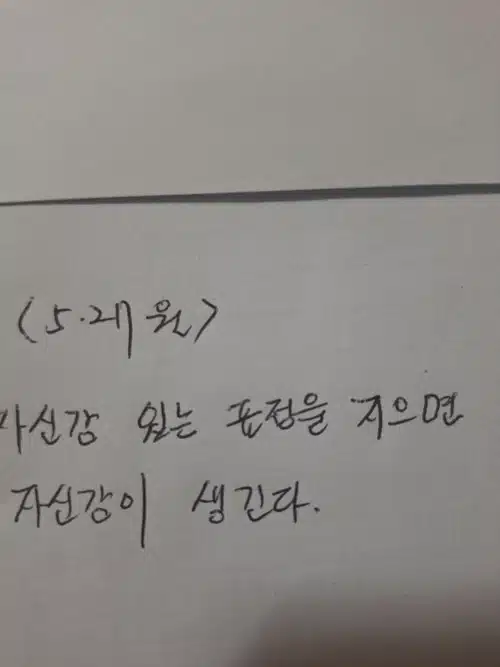 <5.27 월>
자신감 있는 표정을 지으면
자신감이 생긴다.